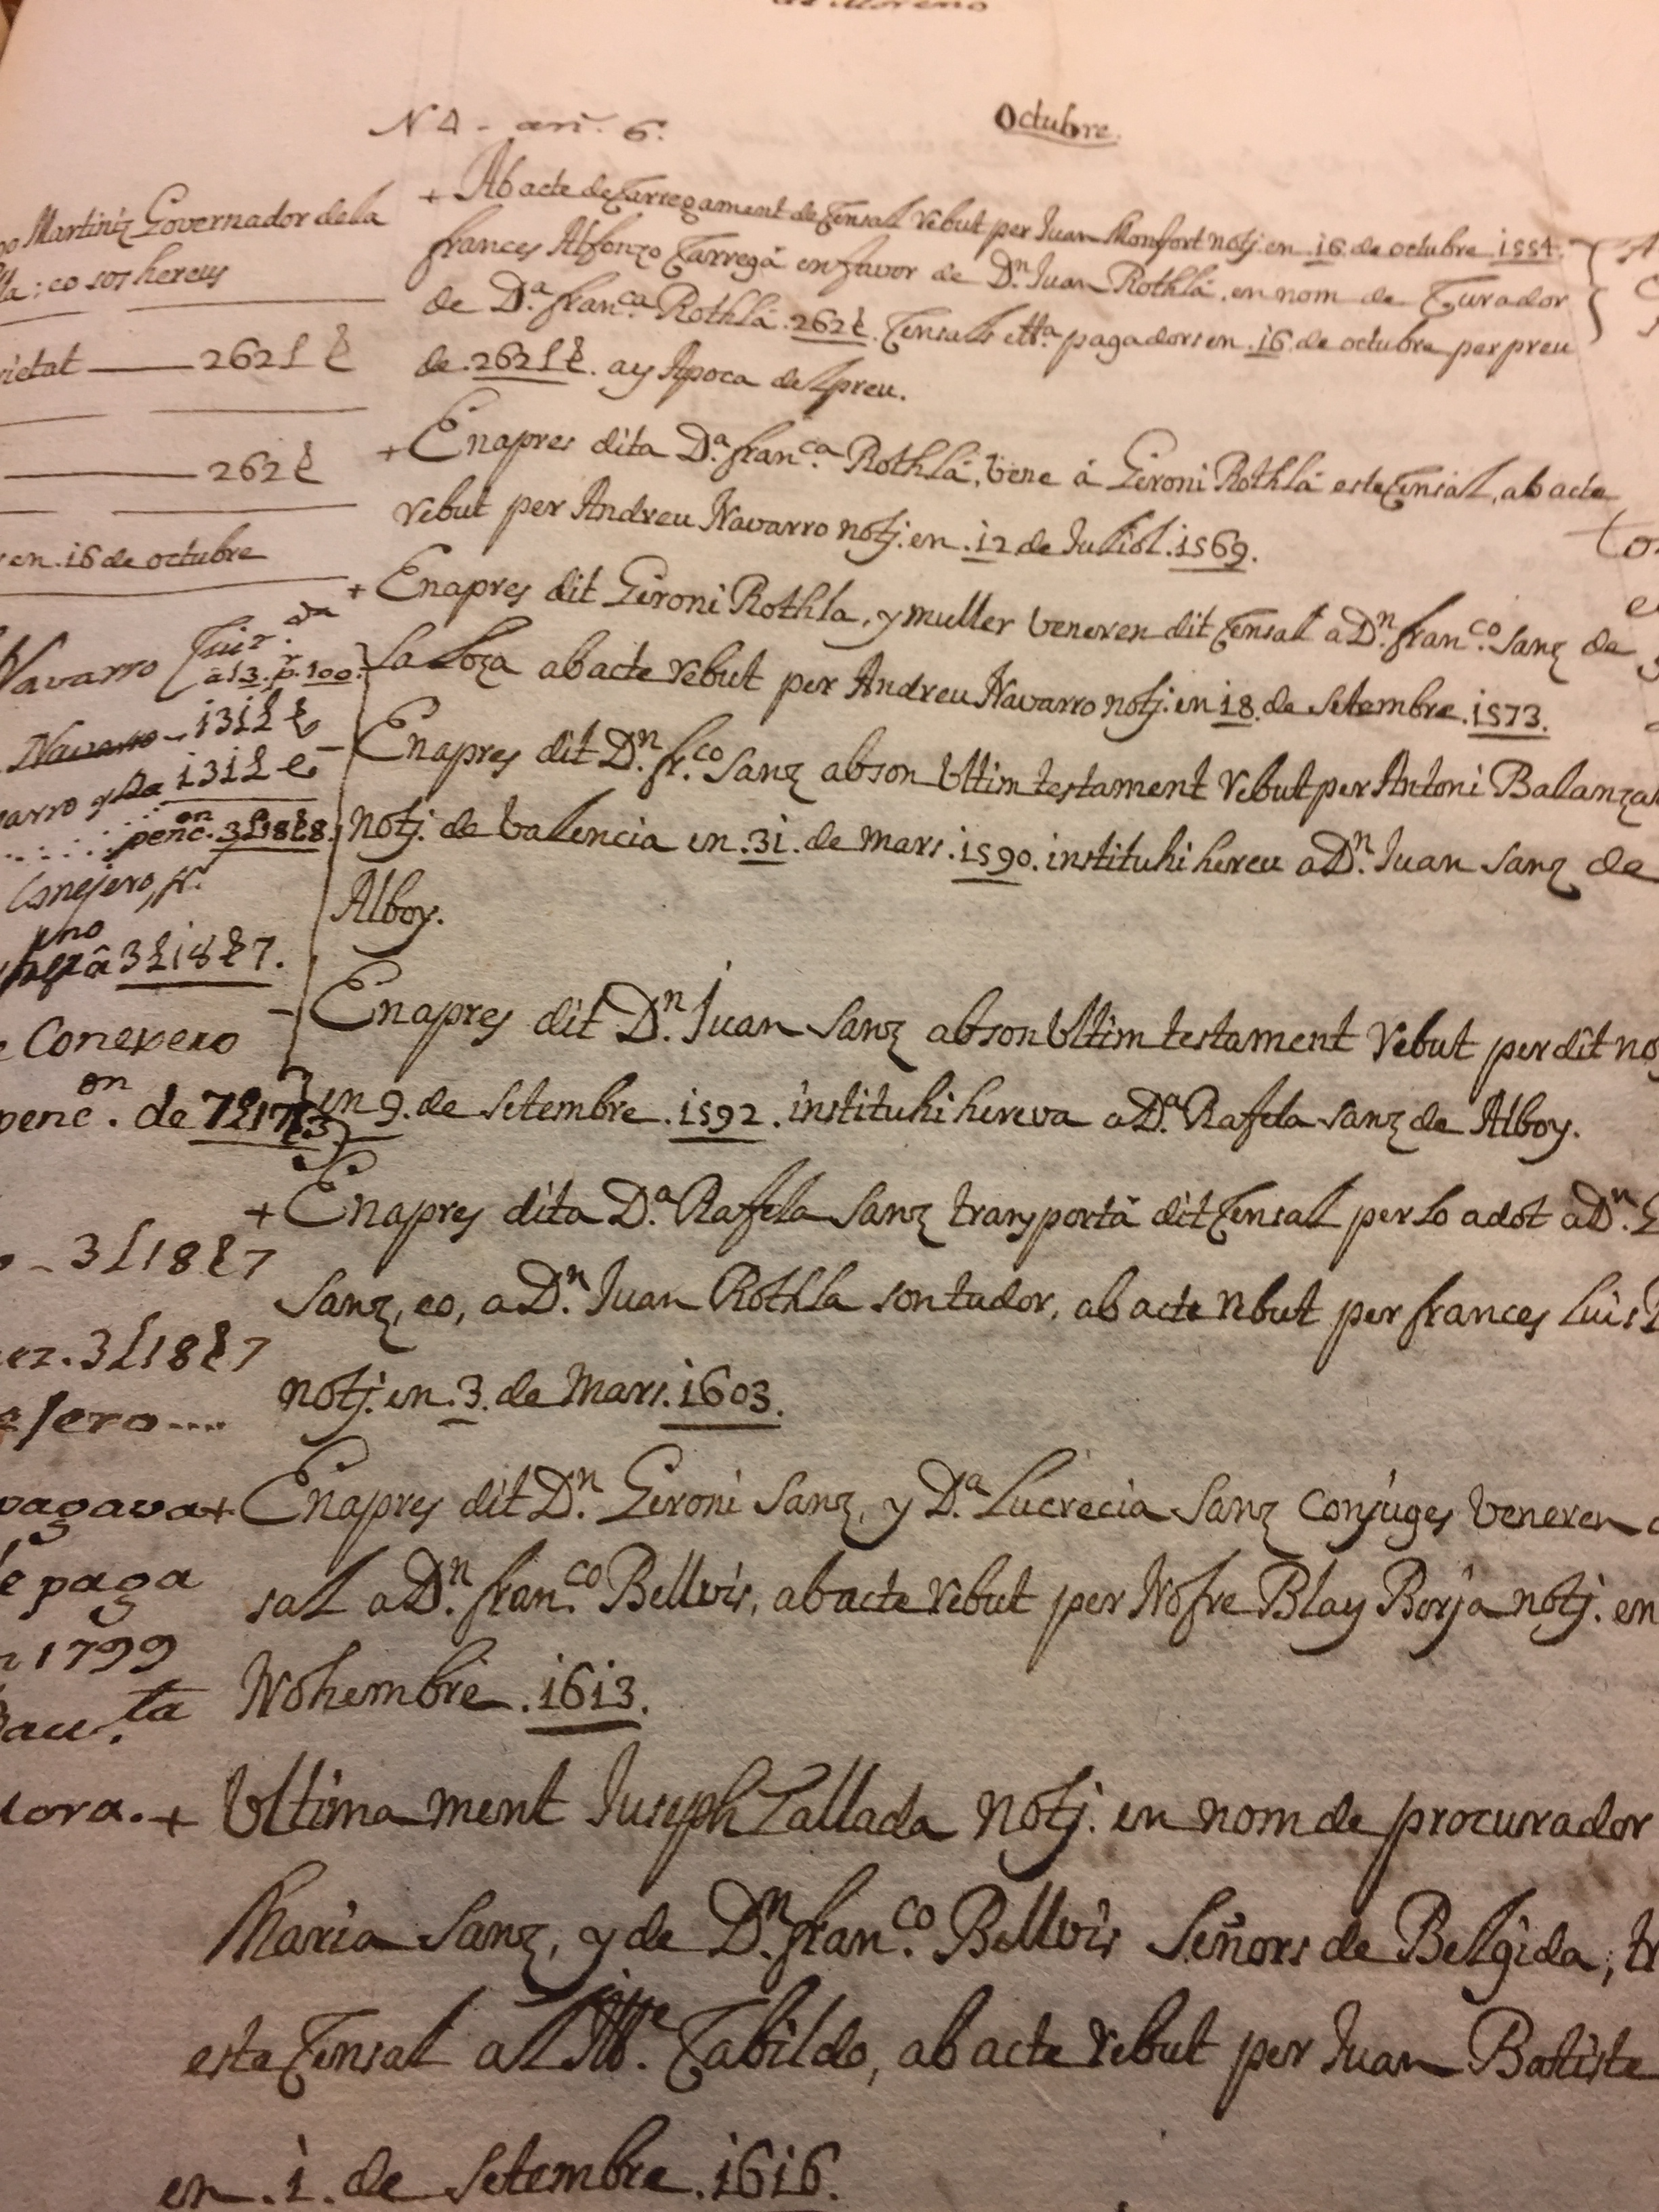 de Moreno
N 4 - arm. 6.
Octubre.
+ Ab acte de Carregament de Censal rebut per Juan Monfort notj. en .16. de octubre .1554.
frances Alfonzo Carregà en favor de Dn. Juan Rothlá, en nom de Curador
de Da. franca. Rothlá .262 ß. Censals ettª. pagadors en .16. de octubre per preu
de .262 £ ß. ay Apoca del preu.
+ Enapres dita Da. franca. Rothlá, vene á Geroni Rothlá este Censal, ab acte
rebut per Andreu Navarro notj. en .12. de Juliol .1569.
+ Enapres dit Geroni Rothla, y muller veneren dit Censal a Dn. franco. Sanz de
la Loza ab acte rebut per Andreu Navarro notj. en 18. de Setembre .1573.
- Enapres dit Dn. frco. Sanz ab son Ultim testament rebut per Antoni Balanza
notj. de Valencia en .31. de Mars .1590. instituhi hereu a Dn. Juan Sanz de
Alboy.
- Enapres dit Dn. Juan Sanz ab son Ultim testament rebut per dit no
en 9. de Setembre .1592. instituhi hereva a Da. Rafela Sanz de Alboy.
+ Enapres dita Da. Rafela Sanz transportá dit Censal per lo adot a Dn. G
Sanz, eo, a Dn. Juan Rothla son tudor, ab acte rebut per frances Luis
notj. en .3. de Mars .1603.
+ Enapres dit Dn. Geroni Sanz, y Da. Lucrecia Sanz Conjuges veneren
sal a Dn. franco. Bellvis, ab acte rebut per Nofre Blay Borja notj. en
Nohembre .1613.
+ Ultima ment Juseph Zallada notj. en nom de procurador
Maria Sanz, y de Dn. franco. Bellvis Señors de Belgida, tr
este Censal al Itte. Cabildo, ab acte rebut per Juan Batiste
en .1. de Setembre .1616.
Martiniz Governador de la
lla: eo sos hereus
rietat — 262 £ ß
— 262 ß
en .16 de octubre
Navarro
a 13. p. 100.
Navarro - 131 £ ß
arro y Da 131 £ ß
penc.on 3£18ß8.
Conejero, fr.
uno
3£18ß7.
Conexero
penc.on de 7£17ß3
- 3£18ß7
ez. 3£18ß7
ejero...
pagava
e paga
1799
Bau.ta
dora.